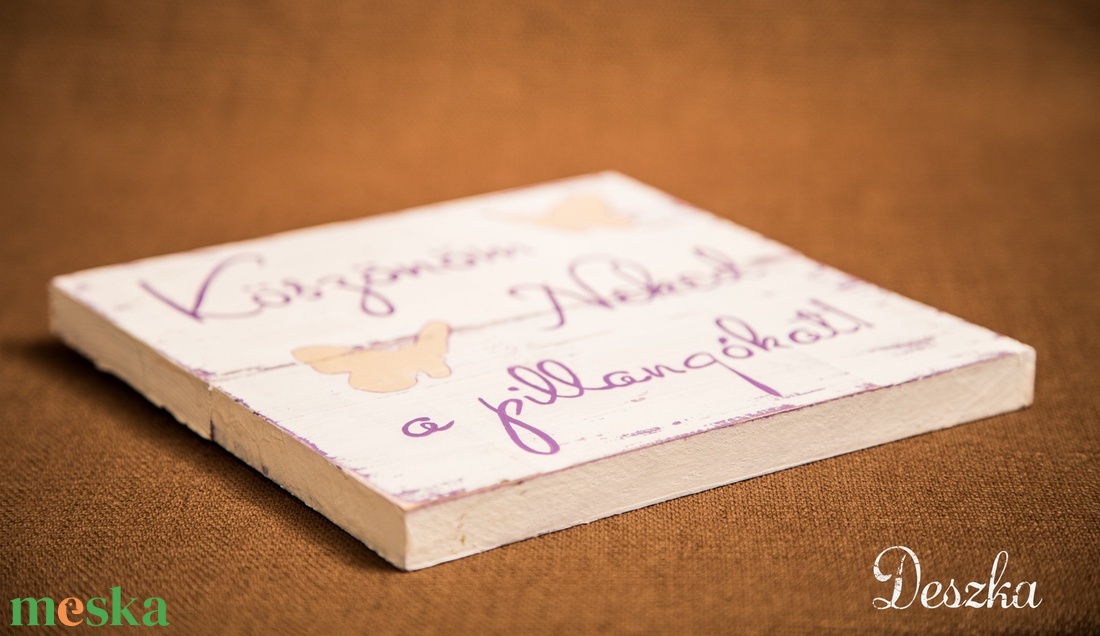 Köszönöm
Neked
a pillangókat!
meska
Deszka